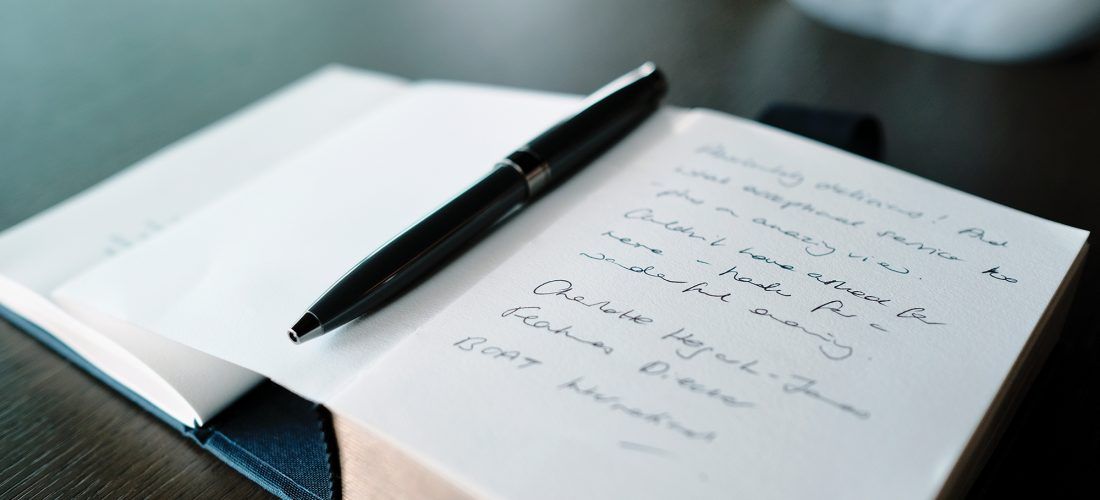 Absolutely delicious! And
what exceptional service too
- plus an amazing view.
Couldn't have asked for
more - thanks for a
wonderful evening.
Charlotte - Jones
Features Director
BOAT International